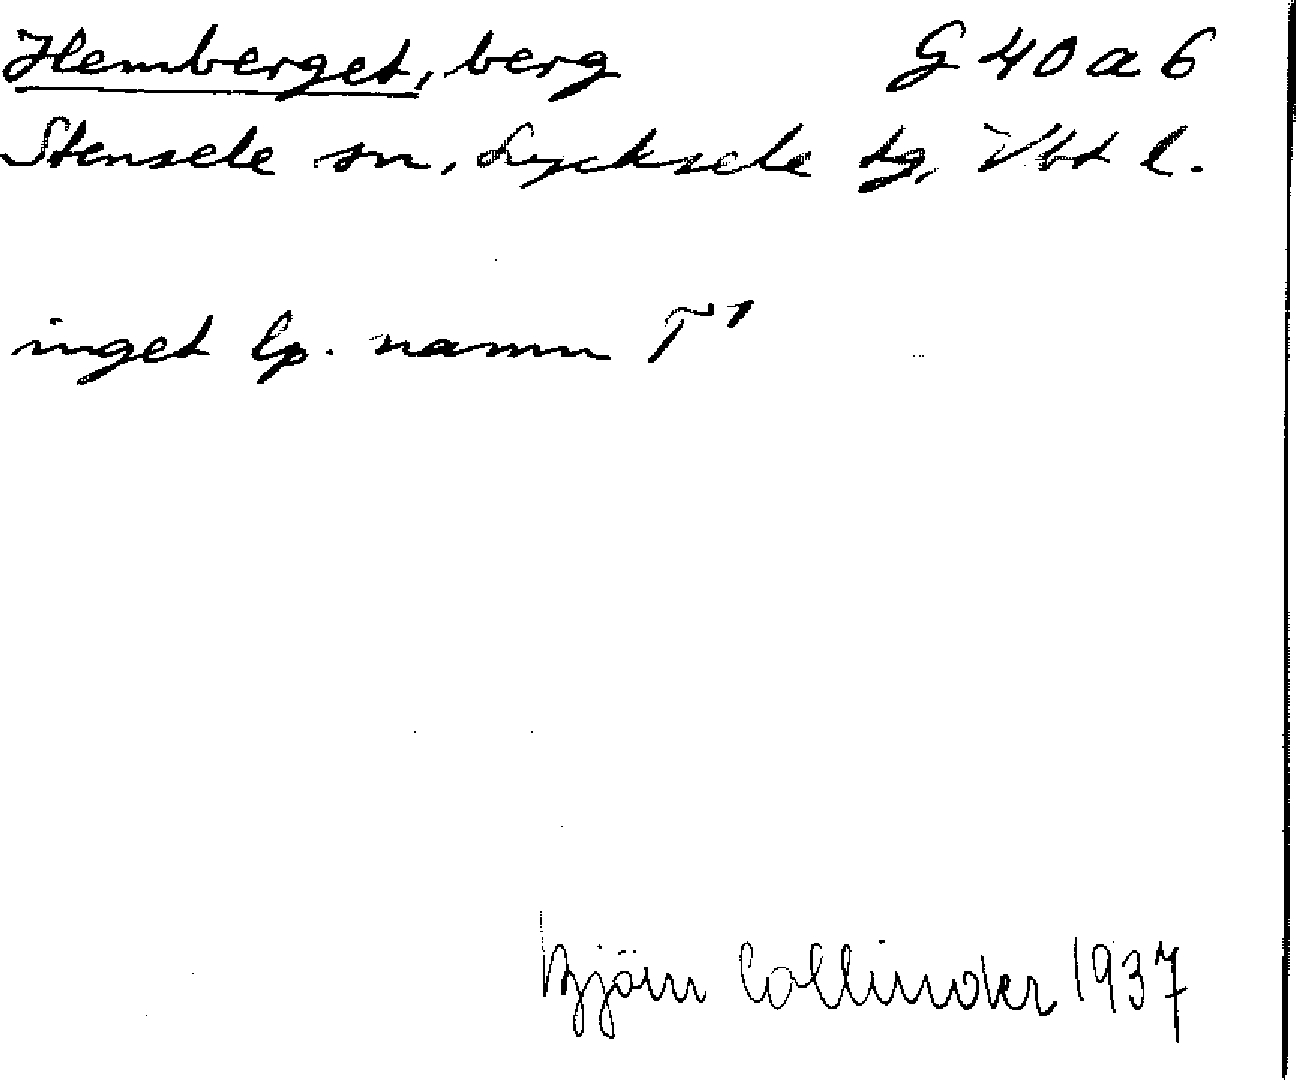 Hemberget, berg G 40 a 6
Stensele sn, Lycksele tg, Vbt l.
inget lp. namn T¹
Björn Collinder 1937